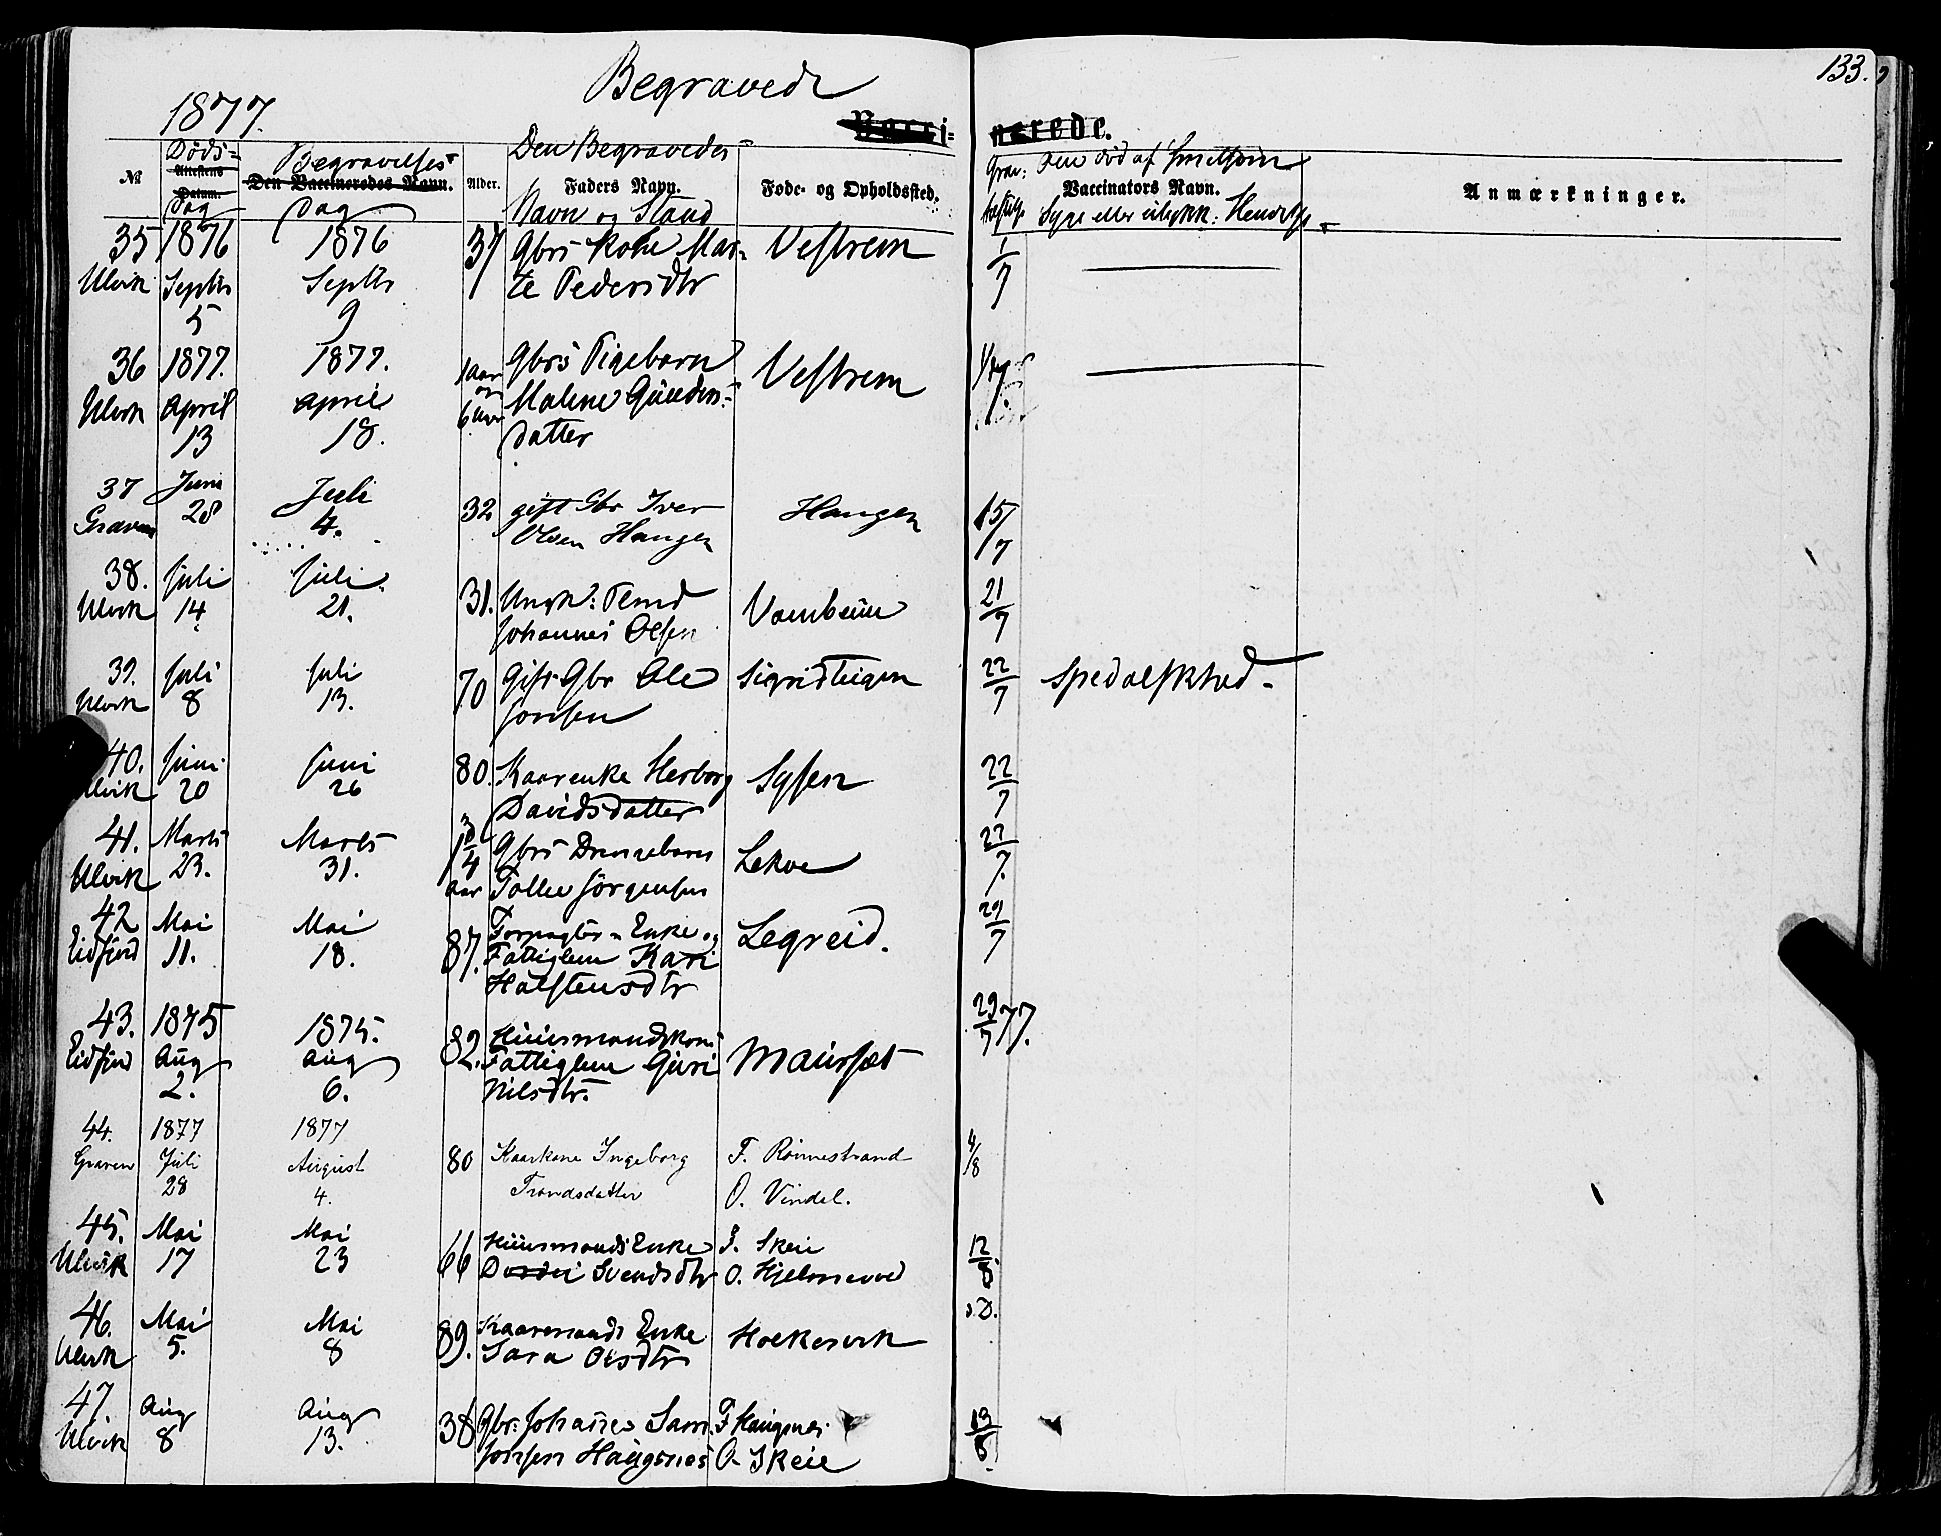 133.
Begravede
1877.
Vacci= nerede.
Døds= Begravelses= Den Begravedes Grav: Den død af smitsom
№ Attestens Datum. Den Vaccineredes Navn. Alder. Faders Navn. Føde- og Opholdssted. Vaccinators Navn. Anmærkninger.
Dag Dag Navn og Stand Syge eller ulykk: Hendelse
35 1876 1876 37 Gbrs Kone Mar= Vestrem 1/7
Ulvik Septbr Septbr te Pedersdtr
5 9
36 1877. 1877. 1 Aar Gbrs Pigebarn Vestrem
Ulvik April April og 6 Malene
13 18. datter
37 Juni Juli 32 gift Gbr Iver Haugen 15/7
Graven 28 4. Olsen Haugen
38. Juli Juli 31. Ungk: 21/7
Ulvik 14 21. Johannes Olsen
39. Juli Juli 70 Gift Gbr Ole Sigridteigen 22/7 Spedalskhed.
Ulvik 8 13. Jonsen
40. Juni Juni 80. Kaarenke Herborg Sysen 22/7
Ulvik 20 26 Davidsdatter
41. Marts Marts 1 3/4 Gbrs Drengebarn Lekve 22/7.
Ulvik 23. 31. Aar Jørgensen
42 Mai Mai 87. Enke og Legreid. 29/7
Eidfjord 11. 18. Fattiglem Kari
Halstensdtr
43. 1875 1875. 82. Huusmandskone Maursæt 29/7 77.
Eidfjord Aug Aug Fattiglem Guri
2. 6. Nilsdtr.
44. 1877 1877 80 Kaarkone Ingeborg F. Rønnestrand 4/8
Graven Juli August Trondsdatter O. Vindal.
28 4.
45. Mai Mai 66 Huusmands Enke F. Skeie 12/8
Ulvik 17 23 Svendsdtr O. Hjelmevod
46. Mai Mai 89. Kaaremands Enke s.D.
Ulvik 5. 8 Sara Olsdtr
47. Aug Aug 38 Gbr: Johannes Sam= F. Haugsnes 13/8
Ulvik 8 13. sonsen Haugsnes O. Skeie